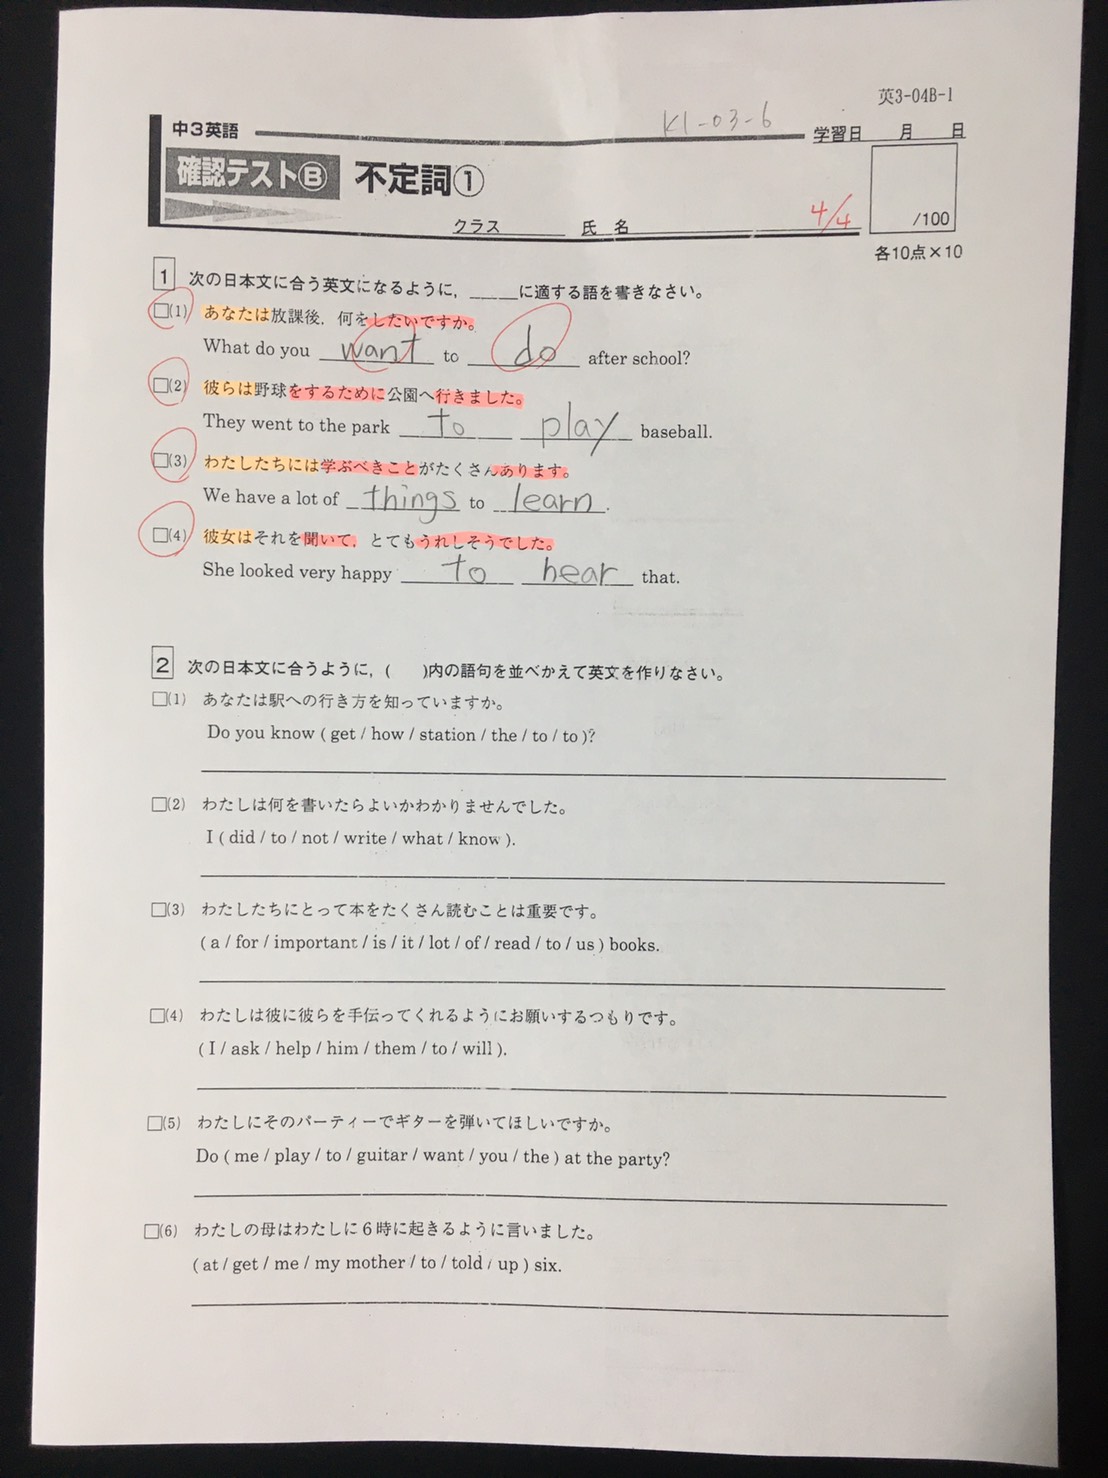 英3-04B-1
中3英語
K1-03-6
学習日 月 日
確認テストⒷ 不定詞①
クラス 氏 名
4/4
/100
各10点×10
1 次の日本文に合う英文になるように，_____に適する語を書きなさい。
□(1) あなたは放課後，何をしたいですか。
What do you want to do after school?
□(2) 彼らは野球をするために公園へ行きました。
They went to the park to play baseball.
□(3) わたしたちには学ぶべきことがたくさんあります。
We have a lot of things to learn.
□(4) 彼女はそれを聞いて，とてもうれしそうでした。
She looked very happy to hear that.
2 次の日本文に合うように，( )内の語句を並べかえて英文を作りなさい。
□(1) あなたは駅への行き方を知っていますか。
Do you know ( get / how / station / the / to / to )?
□(2) わたしは何を書いたらよいかわかりませんでした。
I ( did / to / not / write / what / know ).
□(3) わたしたちにとって本をたくさん読むことは重要です。
( a / for / important / is / it / lot / of / read / to / us ) books.
□(4) わたしは彼に彼らを手伝ってくれるようにお願いするつもりです。
( I / ask / help / him / them / to / will ).
□(5) わたしにそのパーティーでギターを弾いてほしいですか。
Do ( me / play / to / guitar / want / you / the ) at the party?
□(6) わたしの母はわたしに6時に起きるように言いました。
( at / get / me / my mother / to / told / up ) six.